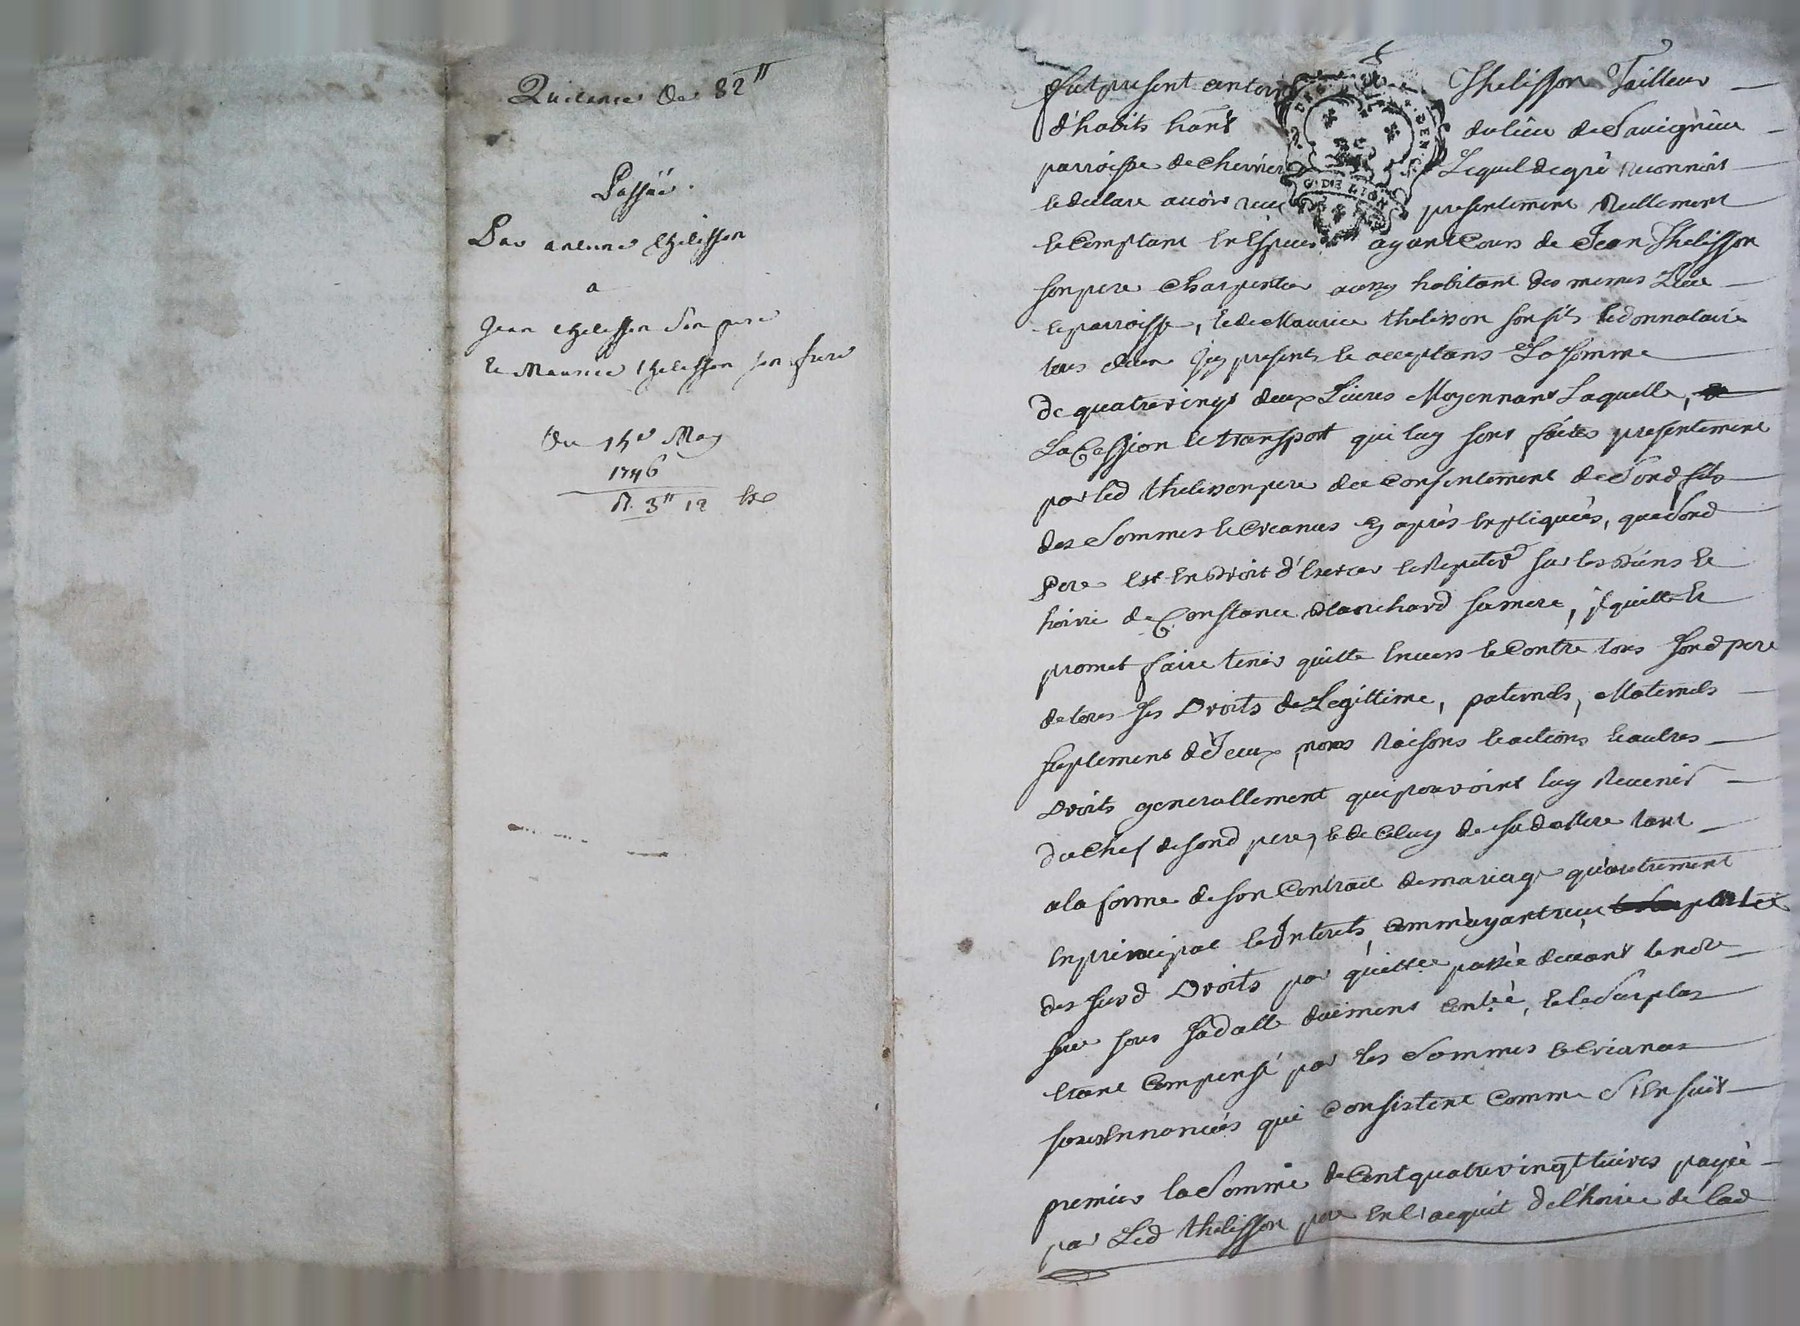 Quitance de 82"
Passée.
Par antoine thelisson
a
Jean thelisson son pere
et Maurice thelisson son frere
Du 15e May
1746
R. 3" 12
fut present antoine Thelisson Tailleur
d'habits hant du lieu de Savignieu
parroisse de Lequel de gré reconnoit
et declare avoir receu presentement Reellement
et Comptant en Especes ayant Cours de Jean Thelisson
son pere charpentier aussy habitant des memes Lieu
et parroisse, et de Maurice thelisson son fils et donnataire
tous deux Icy presents et acceptans La somme
de quatre vingt deux Livres Moyennant Laquelle,
La Cession et transport qui luy sont faites presentement
par led thelisson pere du Consentement de Sond fils
des Sommes et Creances cy après Expliquées, que Sond
Pere est En droit d'Exercer et Repeter sur les Biens et
hoirie de Constance Blanchard sa mere, il quitte et
promet faire tenir quitte Envers et Contre tous Sond pere
de tous ses Droits de Legittime, paternels, Maternels
suplement d'Iceux, noms Raisons et actions et autres
Droits generallement qui pouvoint luy Revenir
du Chef de sond pere, et de Celuy de sad Mere tant
a la forme de son Contract de mariage qu'autrement
En principal et Interets, comm'ayant receu
des susd Droits par quittce passée devant le nore
sous sa datte duement et le Surplus
etant Compensé par les Sommes et Creances
susEnnoncées qui Consistent Comme s'Ensuit
premier la Somme de Cent quatre vingt livres payée
par Led thelisson pere En l'acquit de l'hoirie de lad
G. DE LION